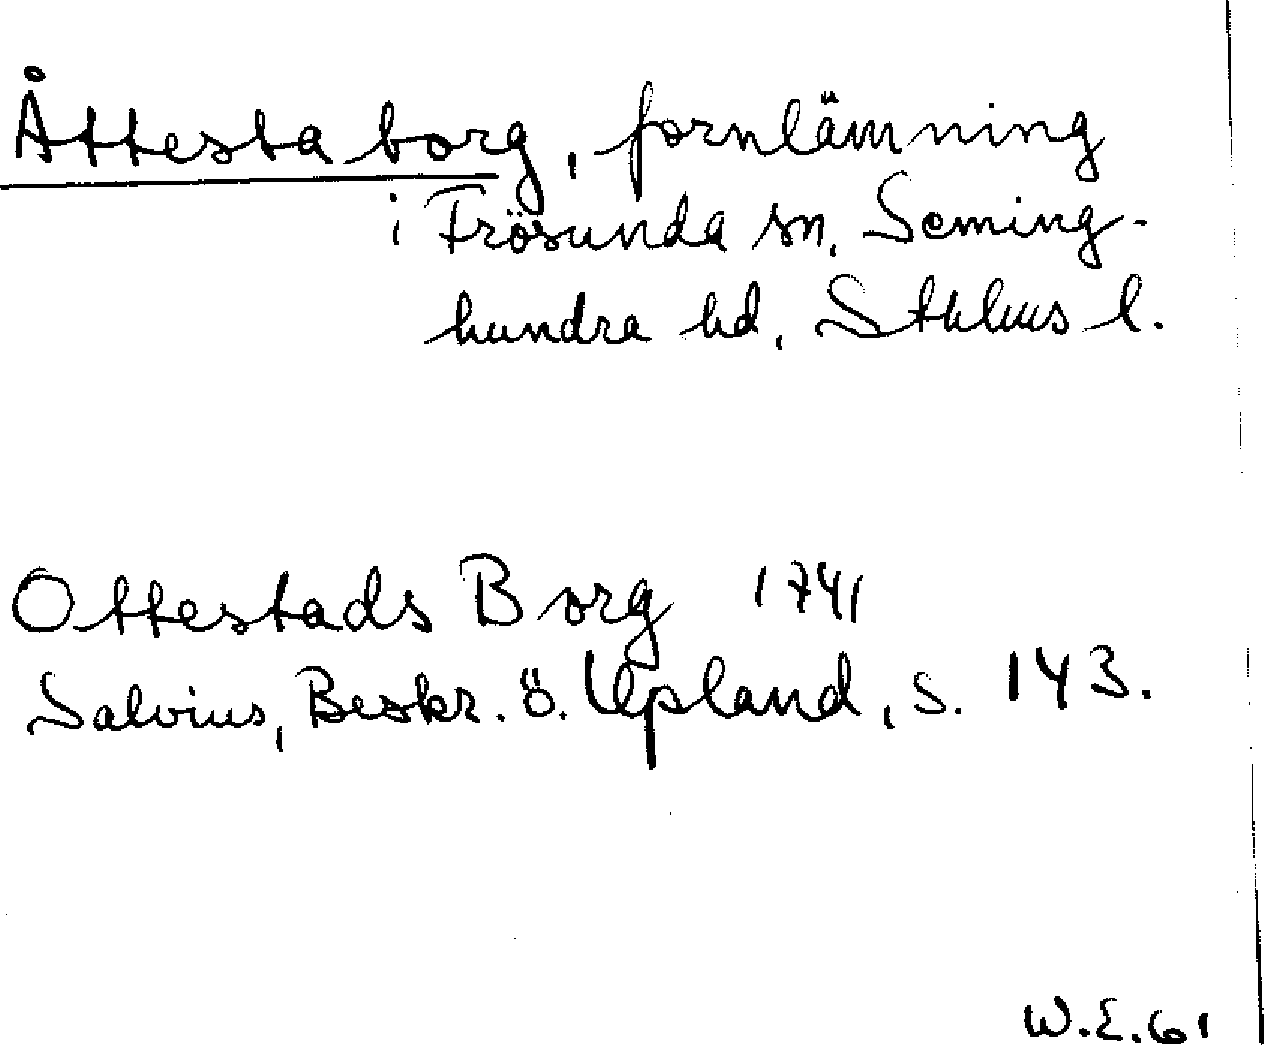 Åttesta borg, fornlämning
i Frösunda sn, Seming-
hundra hd, Sthlms l.
Ottestads Borg 1741
Salvius, Beskr. ö. Upland, s. 143.
W.E. 61